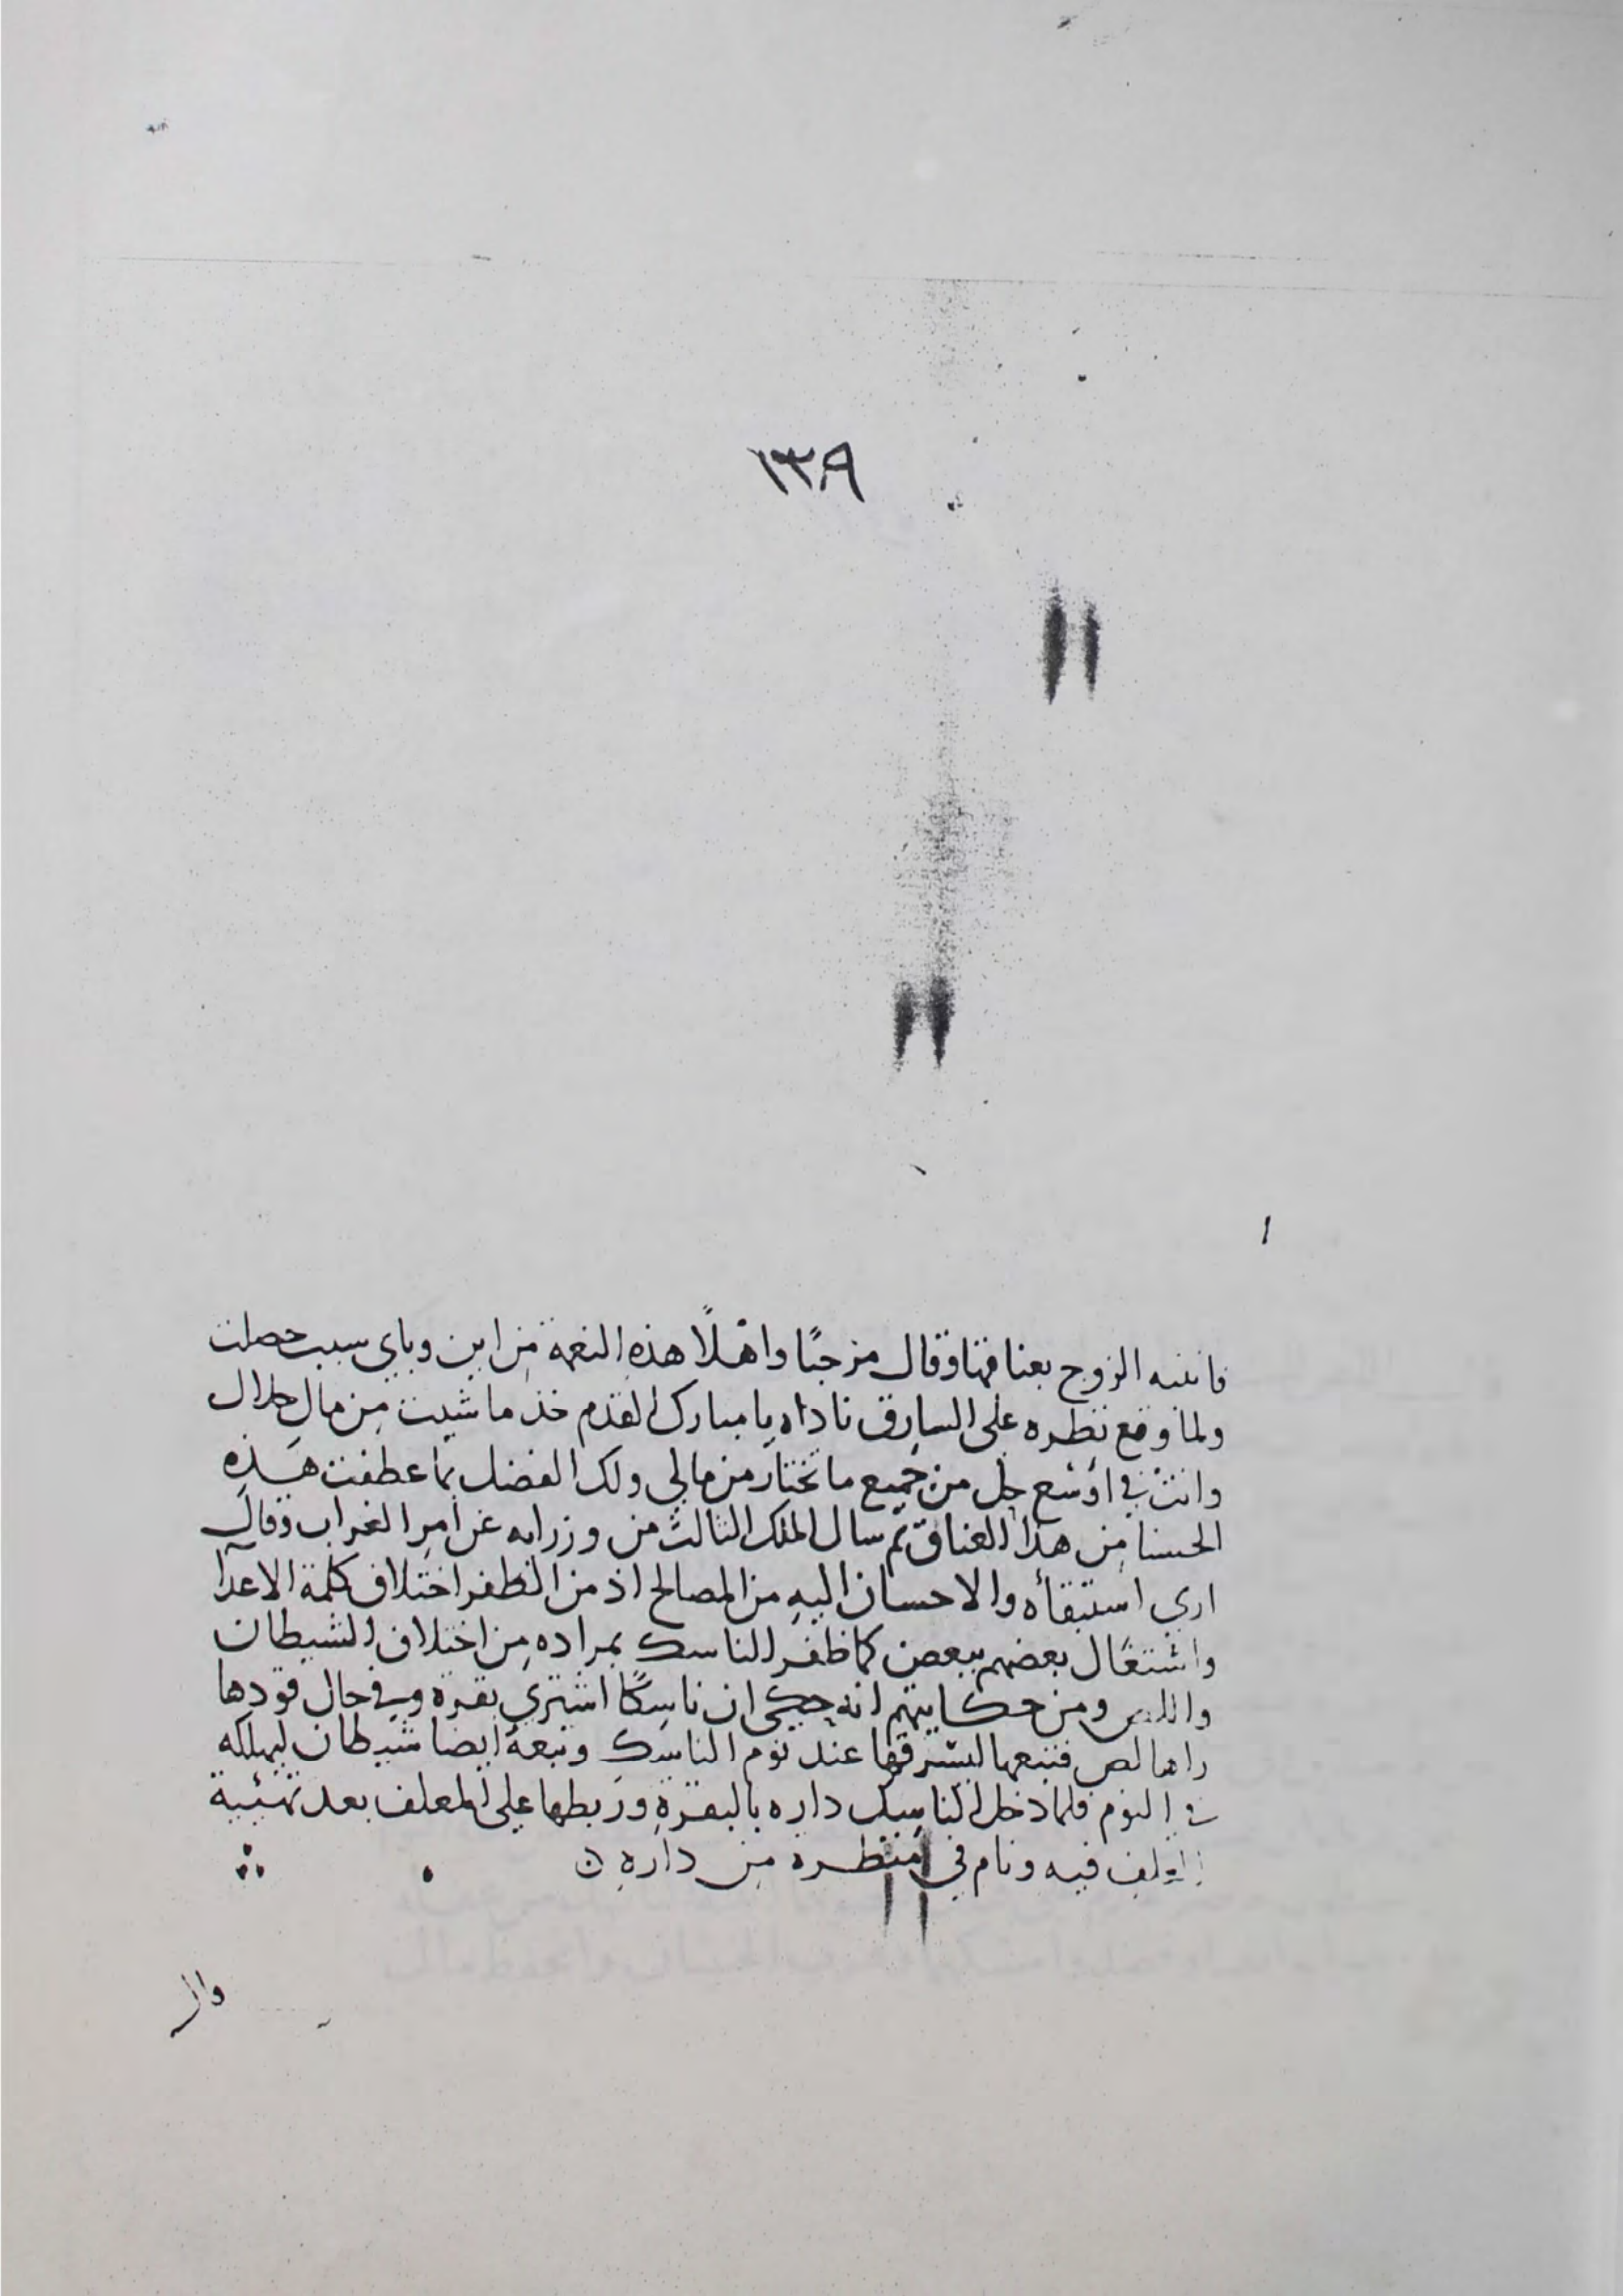 ١٣٩
فانتبه الزوج بعناقها وقال مرحبًا واهلًا هذه النعمة من اين وباى سبب حصلت
ولما وقع نظره على السارق ناداه يا مبارك القدم خذ ما شيت من مال حلال
وانت في اوسع حل من جميع ما تختار من مالي ولك الفضل بما عطفت هذه
الحسنا من هذا العناق ثم سال الملك الثالث من وزرايه عن امر الغراب وقال
اري استبقأه والاحسان اليه من المصالح اذ من الظفر اختلاف كلمة الاعدآ
واشتغال بعضهم ببعض كما ظفر الناسك بمراده من اختلاف الشيطان
واللص ومن حكايتهم انه حكى ان ناسكًا اشتري بقرة وفي حال قودها
راها لص فتبعها ليسرقها عند نوم الناسك وتبعه ايضا شيطان ليهلكه
في النوم فلما دخل الناسك داره بالبقرة وربطها على المعلف بعد تهئية
العلف فيه ونام في منظرة من داره ن
وال